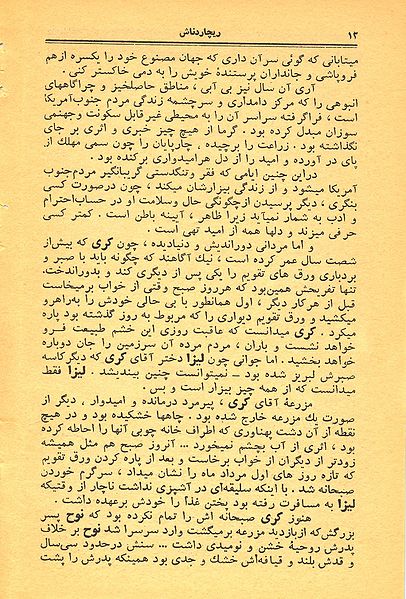 ۱۲ ریچاردناش
میتابانی که گوئی سرآن داری که جهان مصنوع خود را یکسره ازهم
فروپاشی و جانداران پرستندهٔ خویش را به دمی خاکستر کنی .
آری آن سال نیز بی آبی ، مناطق حاصلخیز و چراگاههای
انبوهی را که مرکز دامداری و سرچشمه زندگی مردم جنوب‌آمریکا
است ، فراگرفته سراسر آن را به محیطی غیرقابل سکونت وجهنمی
سوزان مبدل کرده بود . گرما از هیچ چیز خبری و اثری بر جای
نگذاشته بود . زراعت را برچیده ، چارپایان را چون سمی مهلك از
پای در آورده و امید را از دل هرامیدواری برکنده بود .
دراین چنین ایامی که فقر وتنگدستی گریبانگیر مردم‌جنوب
آمریکا میشود و از زندگی بیزارشان میکند ، چون درصورت کسی
بنگری ، دیگر پرسیدن ازچگونگی حال وسلامت او در حساب‌احترام
و ادب به شمار نمیآید زیرا ظاهر ، آیینه باطن است . کمتر کسی
حرفی میزند و دلها همه از امید تهی است .
و اما مردانی دوراندیش و دنیادیده ، چون کری که بیش‌از
شصت سال عمر کرده است ، نیك آگاهند که چگونه باید با صبر و
بردباری ورق های تقویم را یکی پس از دیگری کند و بدورانداخت.
تنها تفریحش همین‌بود که هرروز صبح وقتی از خواب برمیخاست
قبل از هرکار دیگر ، اول همانطور با بی حالی خودش را به‌راهرو
میکشید و ورق تقویم دیواری را که مربوط به روز گذشته بود پاره
میکرد . کری میدانست که عاقبت روزی این خشم طبیعت فرو
خواهد نشست و باران ، مردم مرده آن سرزمین را جان دوباره
خواهد بخشید . اما جوانی چون لیزا دختر آقای کری که دیگرکاسه
صبرش لبریز شده بود ـ نمیتوانست چنین بیندیشد . لیزا فقط
میدانست که از همه چیز بیزار است و بس .
مزرعهٔ آقای کری ، پیرمرد درمانده و امیدوار ، دیگر از
صورت یك مزرعه خارج شده بود . چاهها خشکیده بود و در هیچ
نقطه از آن دشت پهناوری که اطراف خانه چوبی آنها را احاطه کرده
بود ، اثری از آب بچشم نمیخورد ... آنروز صبح هم مثل همیشه
زودتر از دیگران از خواب برخاست و بعد از پاره کردن ورق تقویم
که تازه روز های اول مرداد ماه را نشان میداد ، سرگرم خوردن
صبحانه شد . با اینکه سلیقه‌ای در آشپزی نداشت ناچار از وقتیکه
لیزا به مسافرت رفته بود پختن غذا را خودش برعهده داشت .
هنوز کری صبحانه اش را تمام نکرده بود که نوح پسر
بزرگش‌که ازبازدید مزرعه برمیگشت وارد سرسرا شد نوح بر خلاف
پدرش روحیهٔ خشن و نومیدی داشت ... سنش درحدود سی‌سال
و قدش بلند و قیافه‌اش خشك و جدی بود همینکه پدرش را پشت